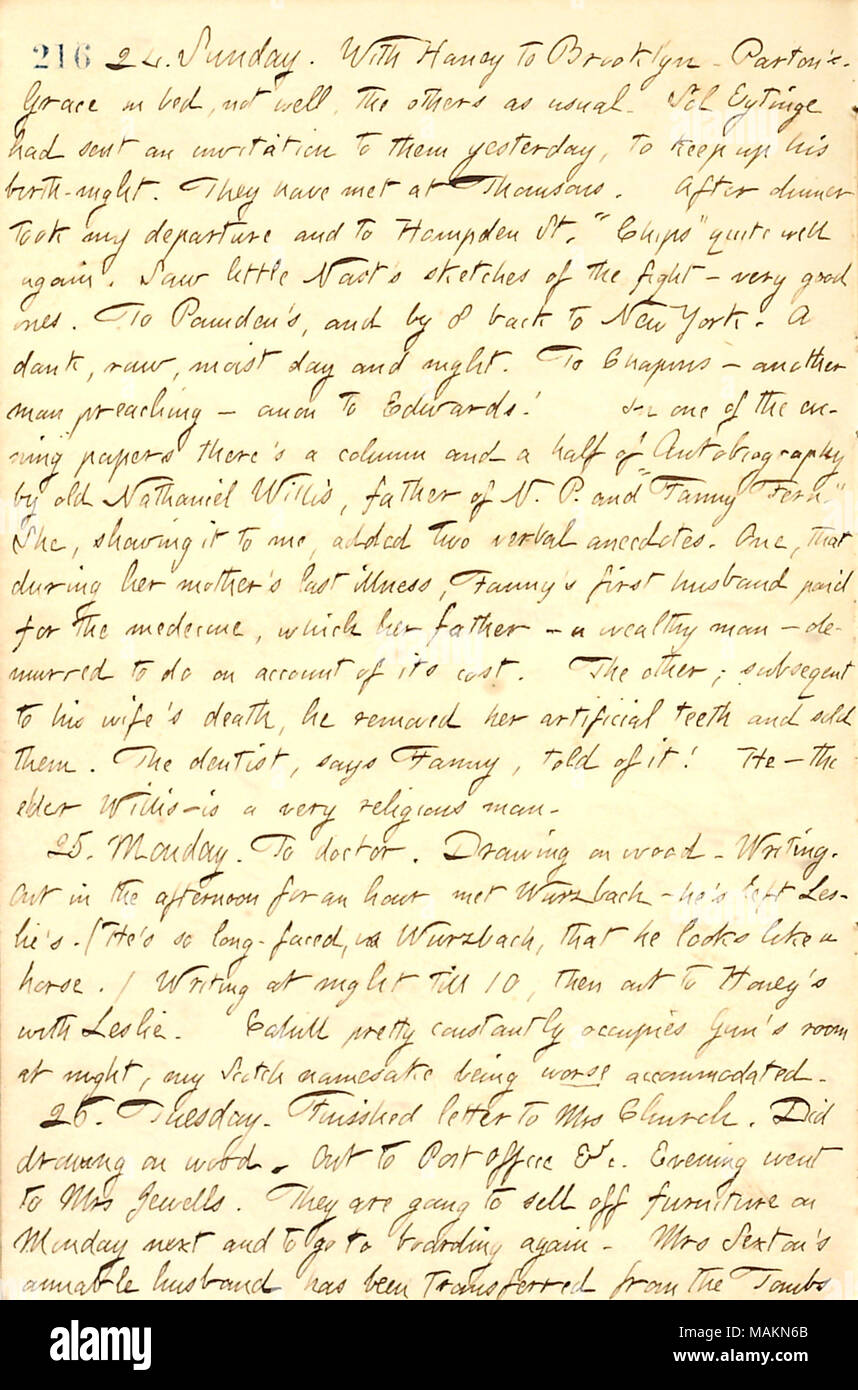 216 24. Sunday. With Haney to Brooklyn - Parton's.
Grace in bed, not well, the others as usual. Sol Eytinge
had sent an invitation to them yesterday, to keep up his
birth-night. They have met at Thomsons. After dinner
took my departure and to Hampden St. "Chips" quite well
again. Saw little Nast's sketches of the fight - very good
ones. To Damden's, and by 8 back to New York. A
dank, raw, moist day and night. To Chapins - another
man preaching - anon to Edwards! In one of the eve-
ning papers there's a column and a half of "Autobiography"
by old Nathaniel Willis, father of N. P. and "Fanny Fern."
She, showing it to me, added two verbal anecdotes. One, that
during her mother's last illness, Fanny's first husband paid
for the medecine, which her father - a wealthy man - de-
murred to do on account of its cost. The other; subsegent
to his wife's death, he removed her artificial teeth and sold
them. The dentist, says Fanny, told of it! He - the
elder Willis - is a very religious man -
25. Monday. To doctor. Drawing on wood - Writing.
Out in the afternoon for an hour, met Wurzbach - he's left Les-
lie's. (He's so long-faced, is Wurzbach, that he looks like a
horse.) Writing at night till 10, then out to Honey's
with Leslie. Cahill pretty constantly occupies Gun's room
at night, my Scotch namesake being worse accommodated -
26. Tuesday. Finished letter to Mrs Church. Did
drawing on wood. Out to Post Office &c. Evening went
to Mrs Jewells. They are going to sell off furniture on
Monday next and to go to boarding again - Mrs Sexton's
amiable husband has been transferred from the Tombs
alamy
Image ID: MAKN6B
www.alamy.com